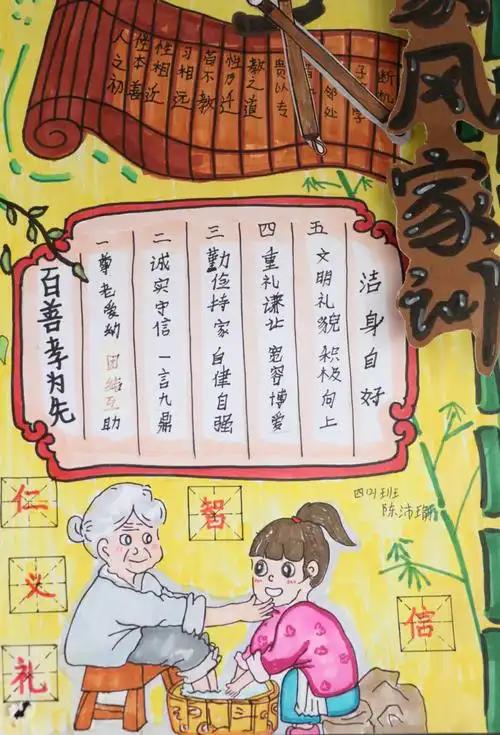 家风家训
人之初
性本善
性相近
习相远
苟不教
性乃迁
教之道
贵以专
邻处
子 学
断机
百善孝为先
一 尊老爱幼 团结互助
二 诚实守信 一言九鼎
三 勤俭持家 自律自强
四 重礼谦让 宽容博爱
五 文明礼貌 积极向上
洁身自好
陈沛
仁
义
礼
智
信